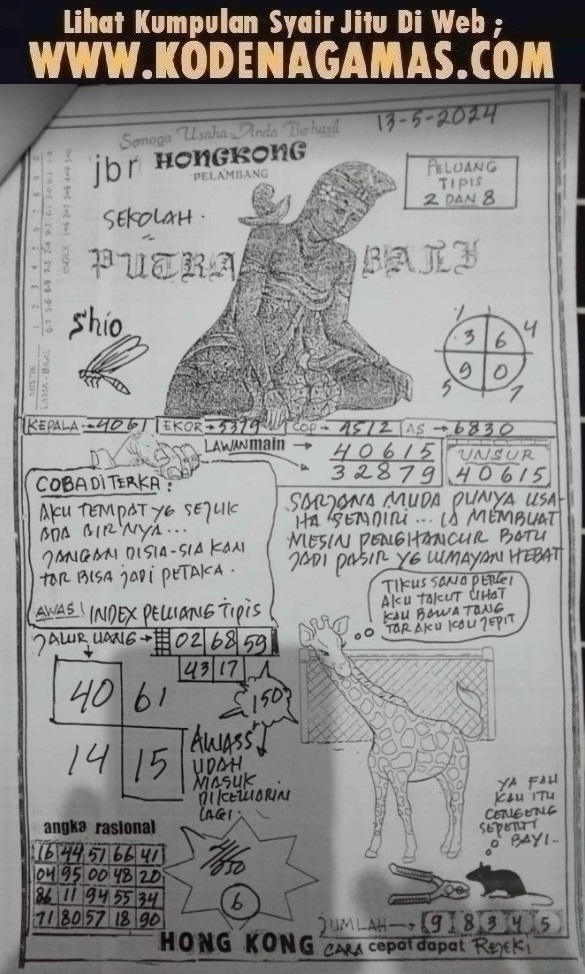 Lihat Kumpulan Syair Jitu Di Web ;
WWW.KODENAGAMAS.COM
13-5-2024
Semoga Usaha Anda Berhasil
jbr HONGKONG
PELAMBANG
PELUANG
TIPIS
2 DAN 8
SEKOLAH.
PUTRA BALI
Shio
1
3 6 4
9 0
5 7
KEPALA → 4061 EKOR → 5379 COP → 4512 AS → 6830
LAWAN main → 40615
32879
UNSUR
40615
COBA DITERKA:
AKU TEMPAT YG SEJUK
ADA AIR'NYA...
JANGAN DISIA-SIA KAN
TAR BISA JADI PETAKA.
SARJANA MUDA PUNYA USA-
HA SENDIRI... IA MEMBUAT
MESIN PENGHANCUR BATU
JADI PASIR YG LUMAYAN HEBAT
TIKUS SANA PERGI
AKU TAKUT LIHAT
KAU BAWA TANG
TAR AKU KAU JEPIT
AWAS! INDEX PELUANG TIPIS
JALUR UANG → 02 68 59
43 17
40 61
14 15
150
AWASS
UDAH
MASUK
DIKELUARIN
LAGI.
YA FAH
KAU ITU
CENGENG
SEPERTI
BAYI..
angka rasional
16 44 57 66 41
04 95 00 48 20
86 11 94 55 34
71 80 57 18 90
6
JUMLAH → 9 8 3 4 5
HONG KONG CARA cepat dapat REJEKI